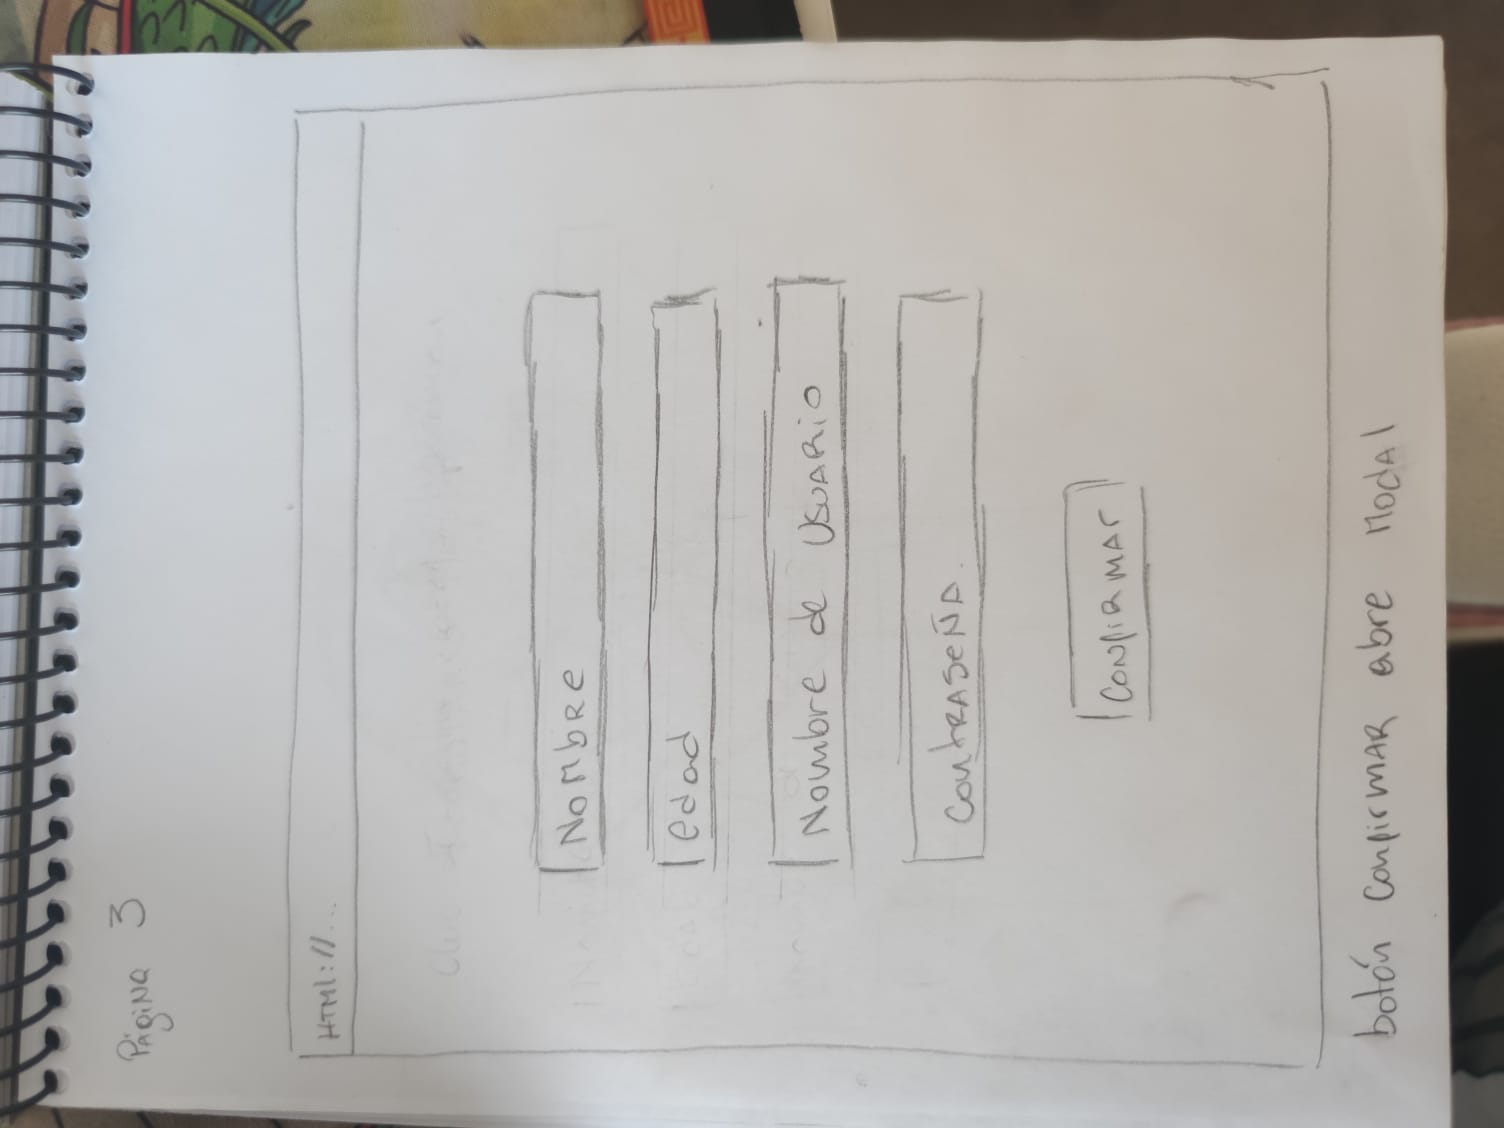 Página 3
HTML://...
Nombre
edad
Nombre de Usuario
Contraseña.
Confirmar
botón Confirmar abre Modal